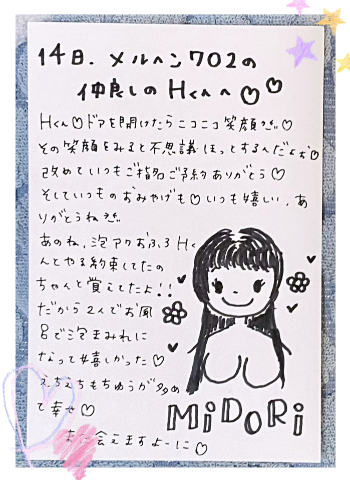 14日.メルヘン702の
仲良しのHくんへ♡♡
Hくん♡ドアを開けたらニコニコ笑顔で♡
その笑顔をみると不思議ほっとするんだよぉ♡
改めていつもご指名ご予約ありがとう♡
そしていつものおみやげも♡いつも嬉しい、あ
りがとうね
あのね、泡アワおふろHく
んとやる約束してたの
ちゃんと覚えてたよ!!
だから2人でお風
呂で泡まみれに
なって嬉しかった♡
えちえちもちゅうが多め
で幸せ♡
また会えますよーに♡
MiDORi